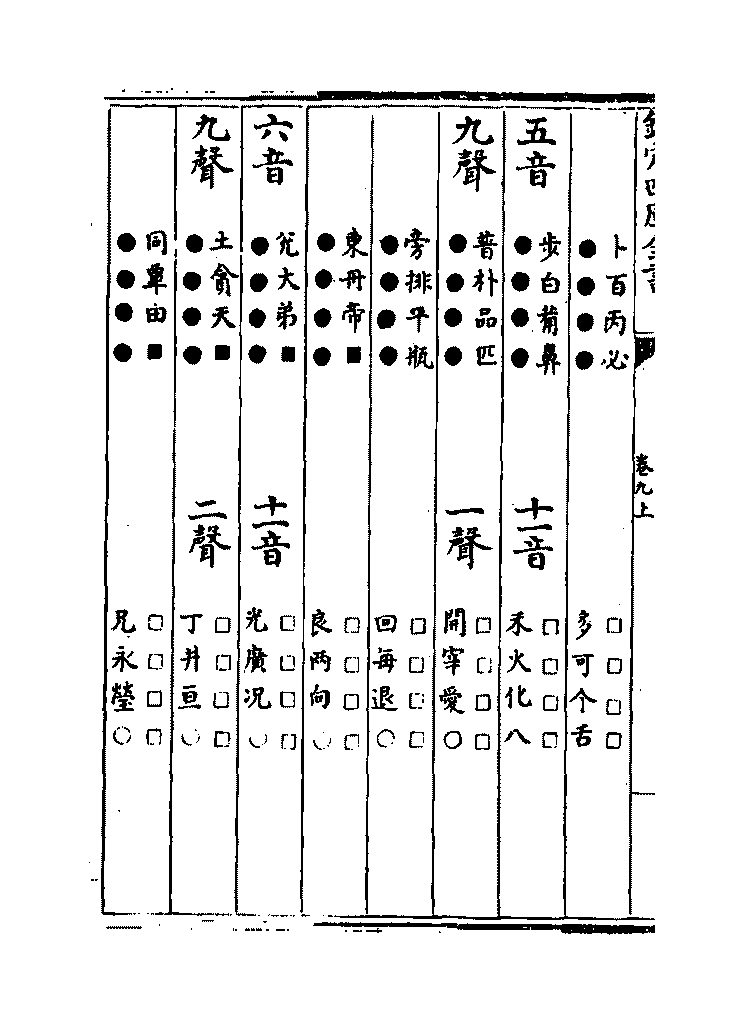 欽定四庫全書
卷九上
卜百丙必
●●●●
□□□□
多可个舌
五音
步白葡鼻
●●●●
十一音
□□□□
禾火化八
九聲
普朴品匹
●●●●
一聲
□□□□
開宰愛○
旁排平瓶
●●●●
□□□□
回每退○
東丹帝■
●●●●
□□□□
良兩向○
六音
兌大弟■
●●●●
十一音
□□□□
光廣況○
九聲
土貪天■
●●●●
二聲
□□□□
丁井亘○
同覃田■
●●●●
□□□□
兄永瑩○